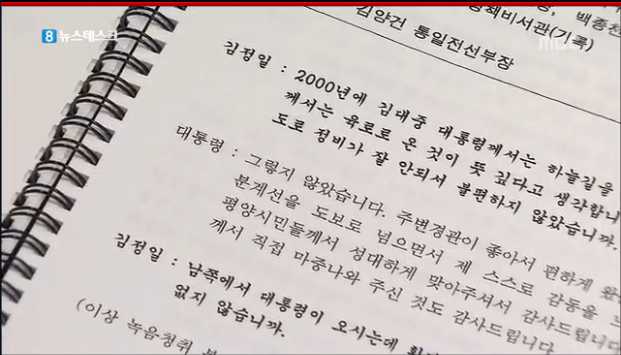 8 뉴스데스크
책비서관(기록)
김양건 통일전선부장
김정일 : 2000년에 김대중 대통령께서는 하늘길을
께서는 육로로 온 것이 뜻 깊다고 생각합니
도로 정비가 잘 안되서 불편하지 않았습니까.
대통령 : 그렇지 않았습니다. 주변경관이 좋아서 편하게 왔
분계선을 도보로 넘으면서 제 스스로 감동을
평양시민들께서 성대하게 맞아주셔서 감사드립니
께서 직접 마중나와 주신 것도 감사드립니다.
김정일 : 남쪽에서 대통령이 오시는데
없지 않습니까.
(이상 녹음청취